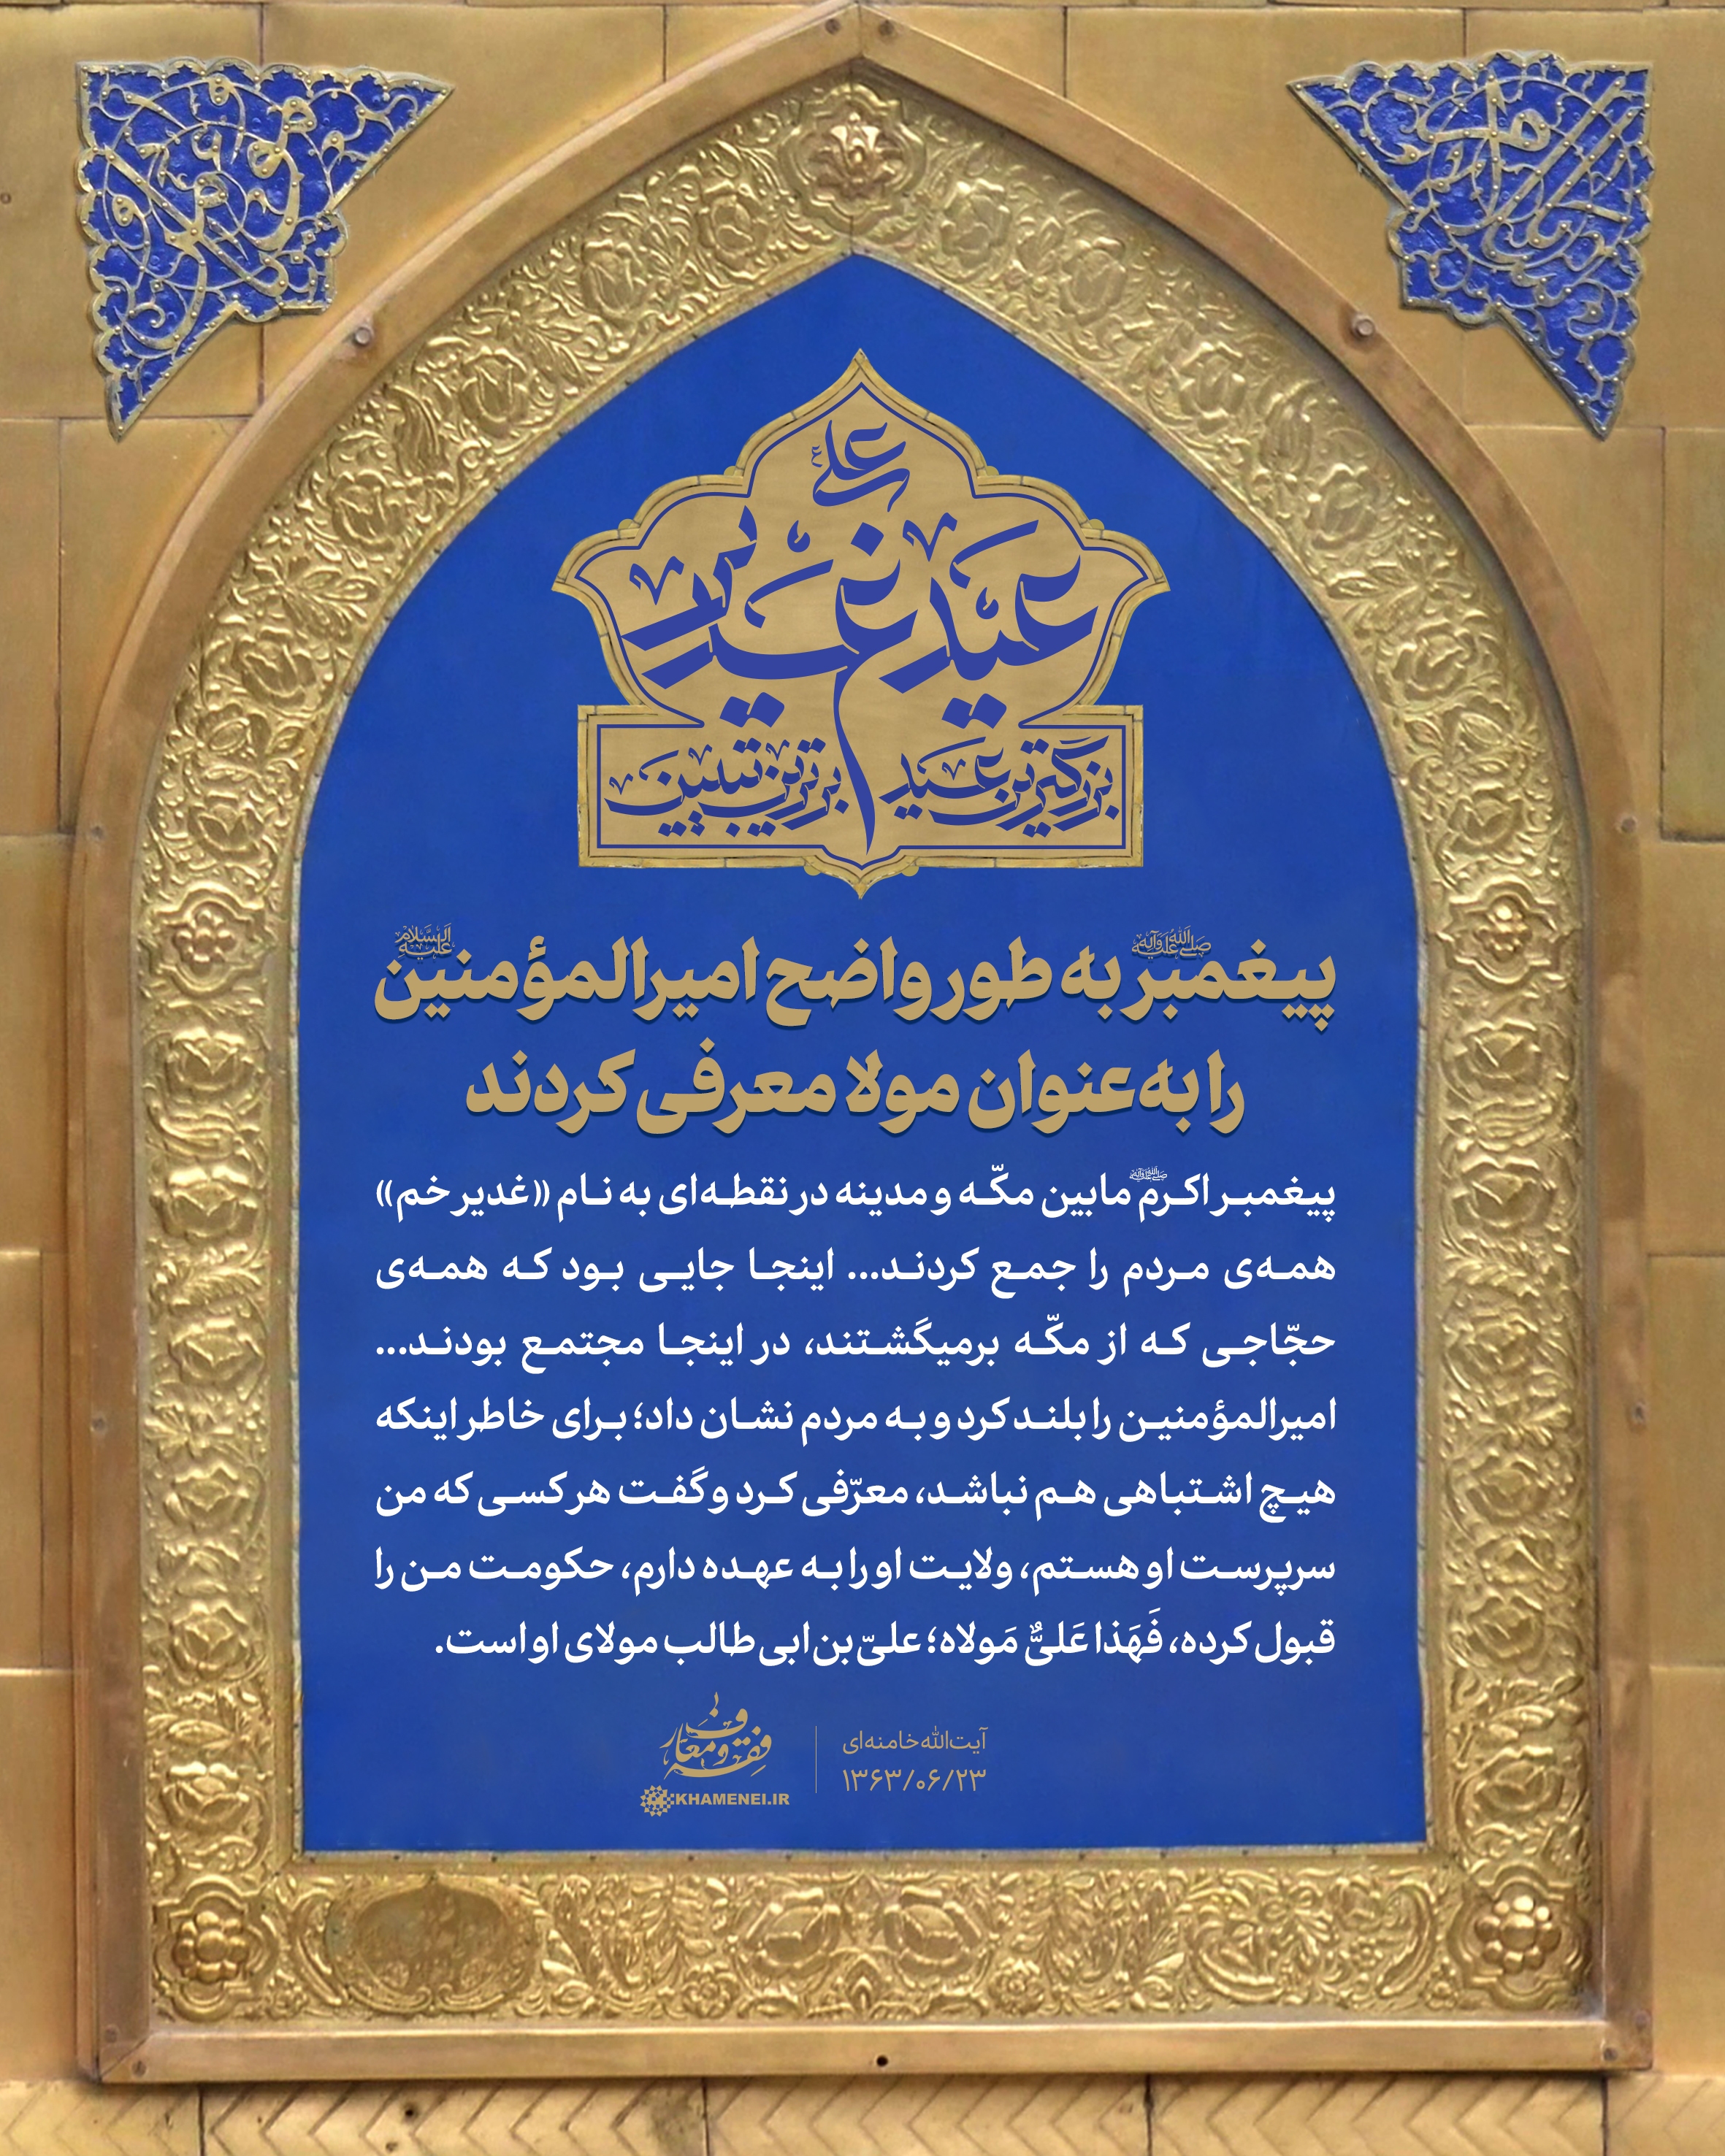 علی
عید غدیر
بزرگترین عید برترین تبیین
پیغمبر صلی‌الله‌علیه‌وآله به طور واضح امیرالمؤمنین علیه‌السلام
را به عنوان مولا معرفی کردند
پیغمبر اکرم صلی‌الله‌علیه‌وآله مابین مکّه و مدینه در نقطه‌ای به نام «غدیر خم»
همه‌ی مردم را جمع کردند... اینجا جایی بود که همه‌ی
حجّاجی که از مکّه برمیگشتند، در اینجا مجتمع بودند...
امیرالمؤمنین را بلند کرد و به مردم نشان داد؛ برای خاطر اینکه
هیچ اشتباهی هم نباشد، معرّفی کرد و گفت هر کسی که من
سرپرست او هستم، ولایت او را به عهده دارم، حکومت من را
قبول کرده، فَهَذا عَلیٌّ مَولاه؛ علیّ بن ابی طالب مولای او است.
آیت‌الله خامنه‌ای
۱۳۶۳/۰۶/۲۳
فقه و معارف
KHAMENEI.IR